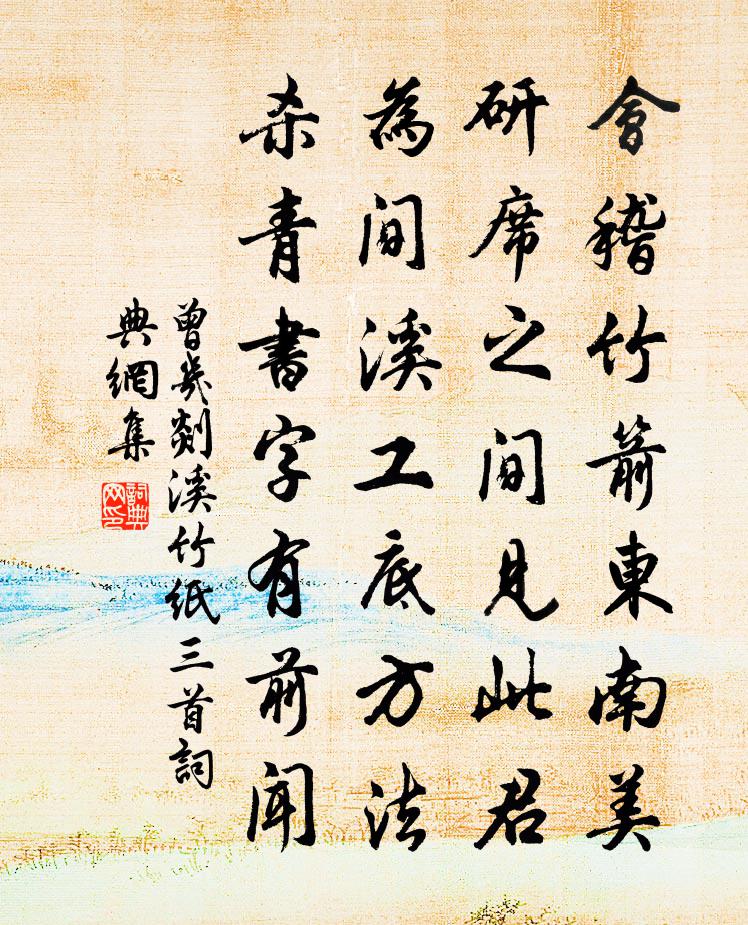 會稽竹箭東南美
研席之間見此君
為問溪工底方法
殺青書字有前聞
曾幾剡溪竹紙三首詞
典網集
詞典
网印